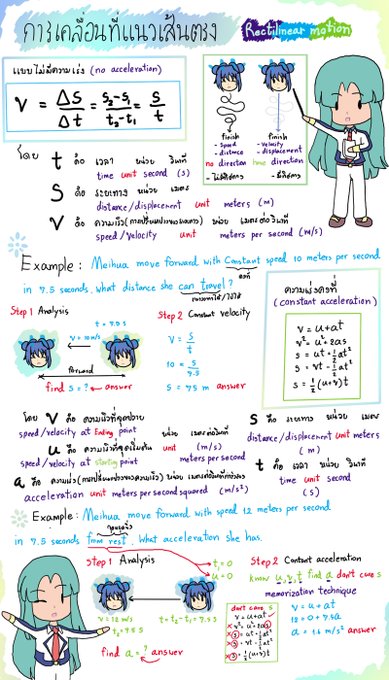 การเคลื่อนที่แนวเส้นตรง
Rectilinear motion
แบบไม่มีความเร่ง (no acceleration)
V = ΔS/Δt = s₂-s₁/t₂-t₁ = s/t
finish
- speed
- distance
no direction
- ไม่มีทิศทาง
finish
- velocity
- displacement
have direction
- มีทิศทาง
โดย t คือ เวลา หน่วย วินาที
time unit second (s)
S คือ ระยะทาง หน่วย เมตร
distance/displacement unit meters (m)
V คือ หน่วย เมตรต่อวินาที
speed/velocity unit meters per second (m/s)
Example: Meihua move forward with constant speed 10 meters per second
คงที่
in 7.5 seconds. what distance she can travel?
Step 1 Analysis
t = 7.5 s
v = 10 m/s
forward
find s = ? answer
Step 2 Constant velocity
V = s/t
10 = s/7.5
S = 75 m answer
ความเร่งคงที่
(constant acceleration)
v = u+at
v² = u²+2as
s = ut+½at²
s = vt-½at²
s = ½(u+v)t
โดย V คือ ความเร็วที่จุดปลาย
speed/velocity at Ending point
หน่วย เมตรต่อวินาที
unit (m/s)
u คือ ความเร็วที่จุดเริ่มต้น
speed/velocity at starting point
a คือ ความเร่ง (การเปลี่ยนแปลงของความเร็ว) หน่วย เมตรต่อวินาทีกำลังสอง
acceleration unit meters per second squared (m/s²)
S คือ ระยะทาง หน่วย เมตร
distance/displacement unit meters
(m)
t คือ เวลา หน่วย วินาที
time unit second
(s)
Example: Meihua move forward with speed 12 meters per second
หยุดนิ่ง
in 7.5 seconds from rest. What acceleration she has.
Step 1 Analysis
t₁ = 0
u = 0
v = 12 m/s
t₂ = 7.5 s
t = t₂-t₁ = 7.5 s
find a = ? answer
don't care s
v = u+at
v² = u²+2as
s = ut+½at²
s = vt-½at²
s = ½(u+v)t
Step 2 Constant acceleration
know u,v,t find a don't care s
memorization technique
v = u+at
12 = 0+7.5a
a = 1.6 m/s² answer